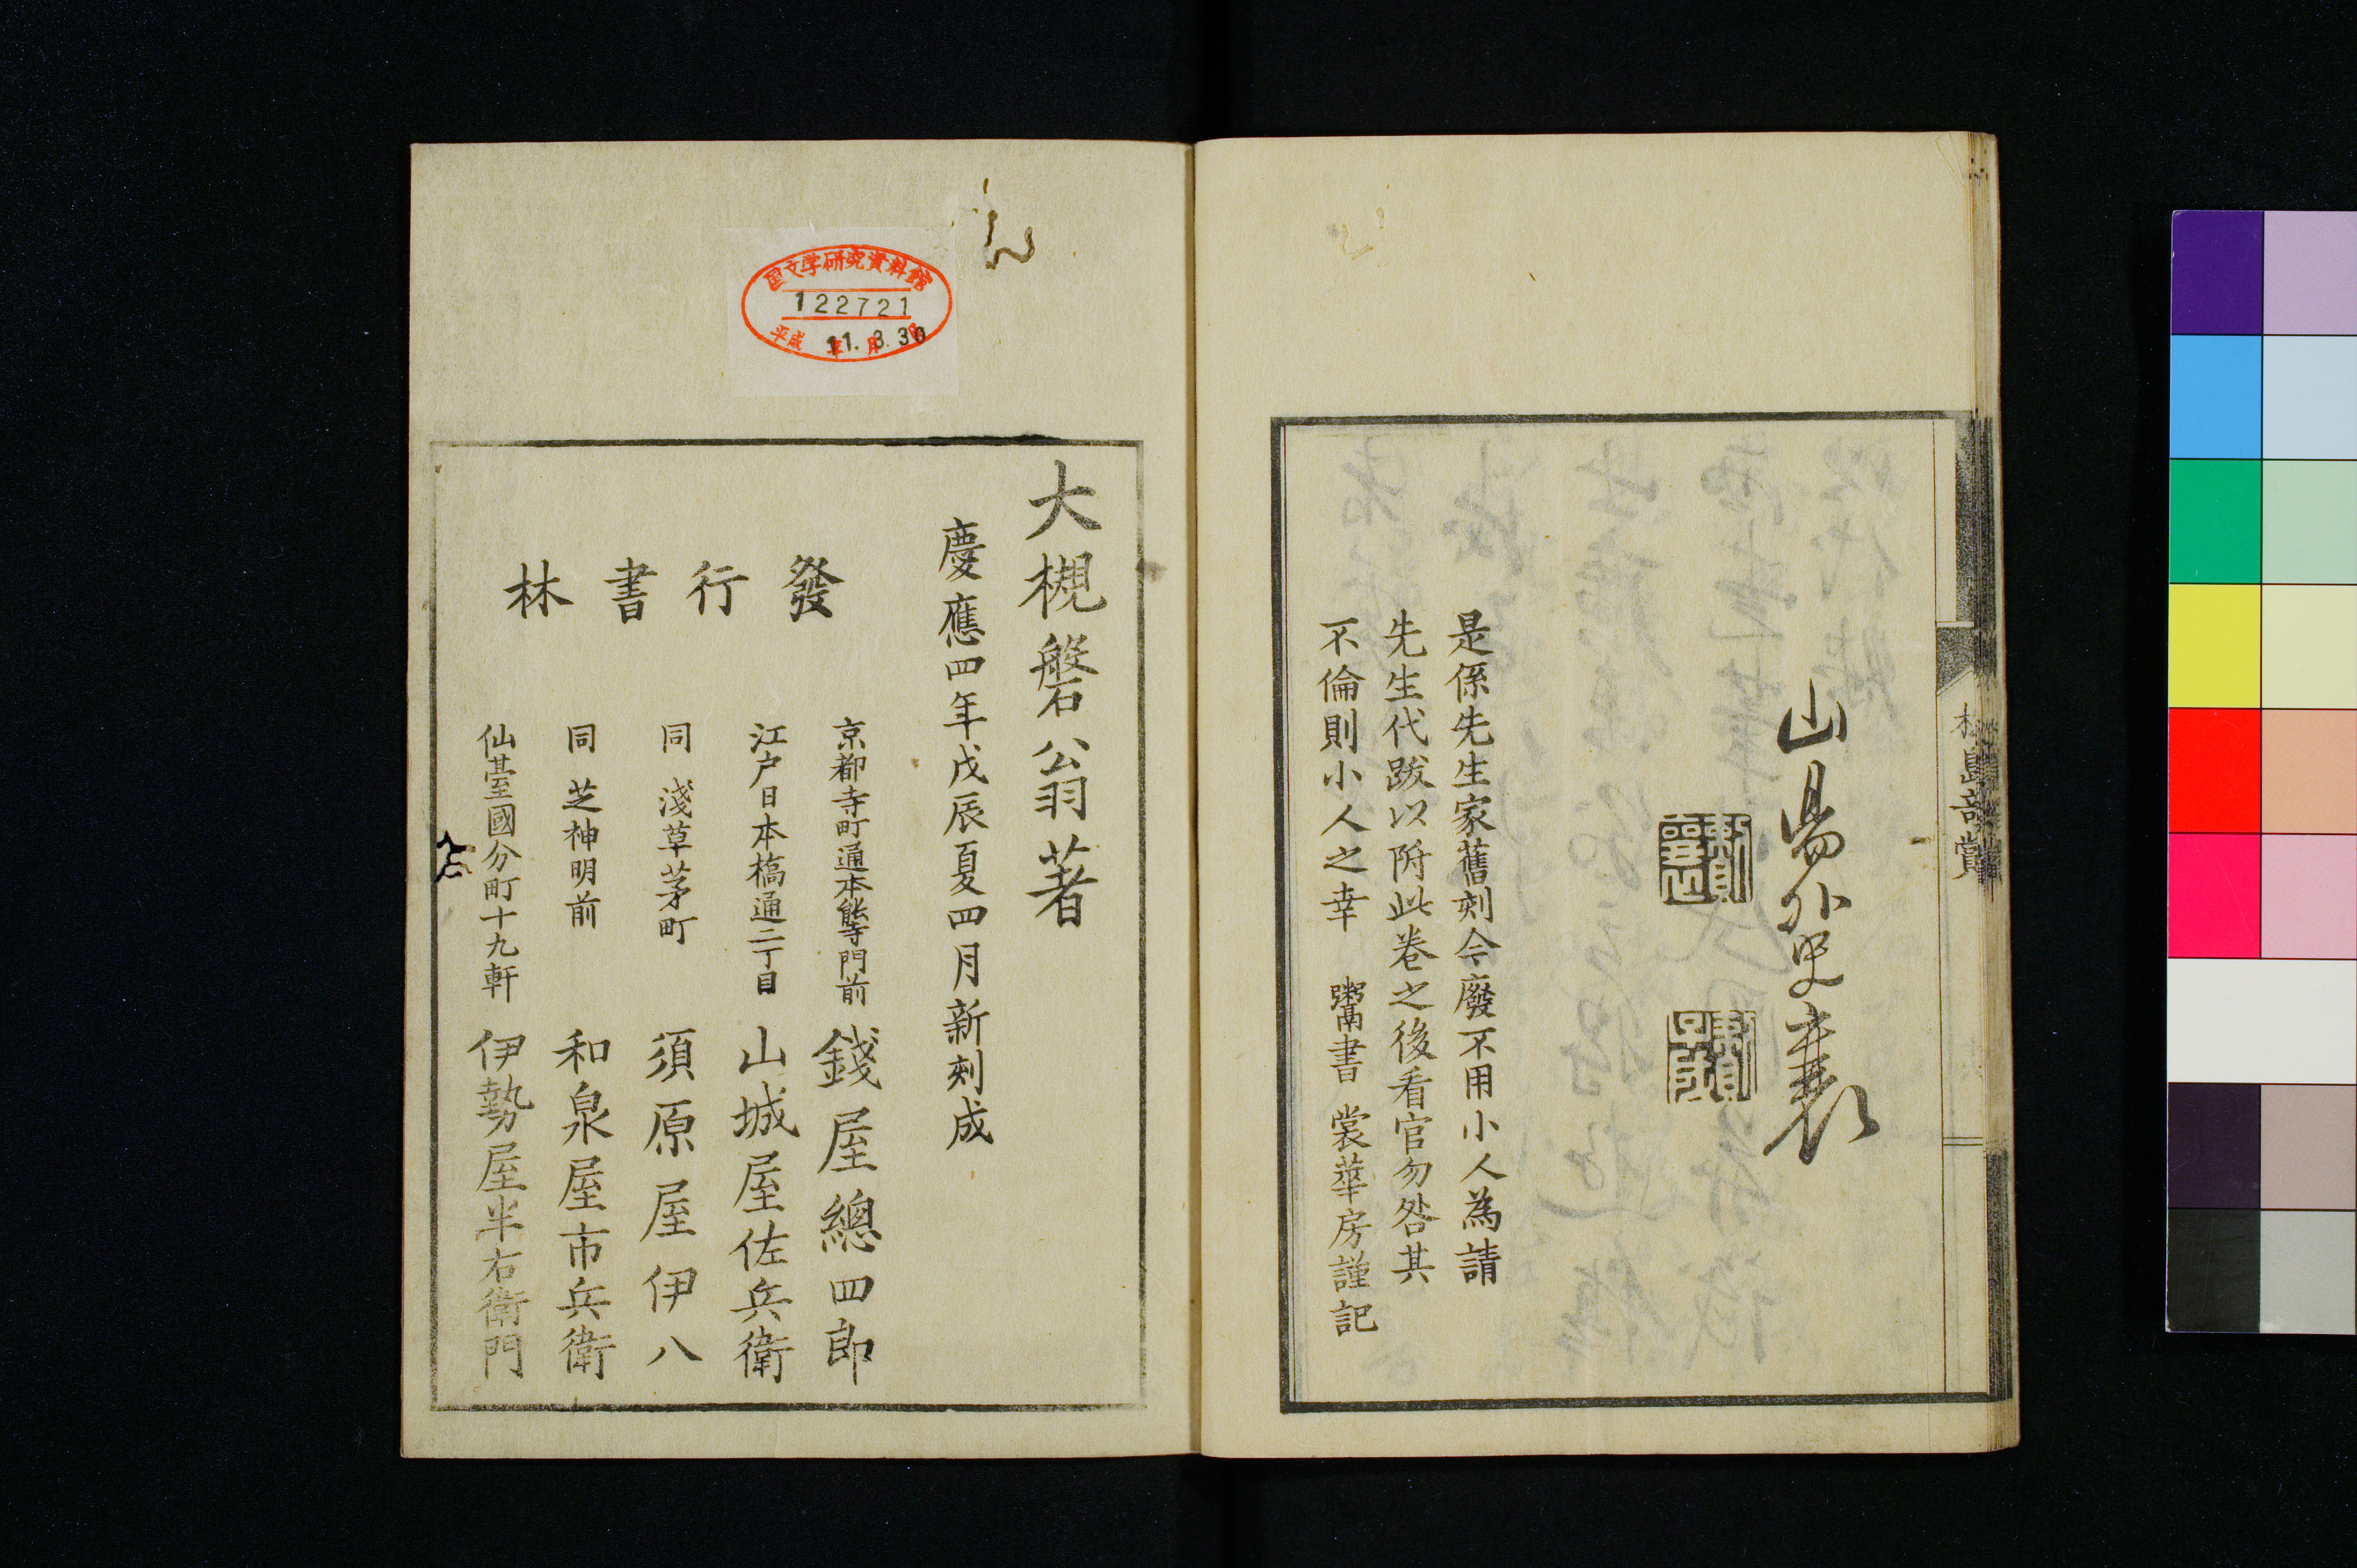 山易外史襄
是係先生家舊刻今廢不用小人為請
先生代跋以附此卷之後看官勿咎其
不倫則小人之幸　鬻書　裳華房謹記
大槻磐翁著
慶應四年戊辰夏四月新刻成
發行書林
京都寺町通本能寺門前　錢屋總四郎
江戸日本橋通二丁目　山城屋佐兵衛
同　淺草茅町　須原屋伊八
同　芝神明前　和泉屋市兵衛
仙臺國分町十九軒　伊勢屋半右衛門
国文学研究資料館
122721
平成 11. 3. 30